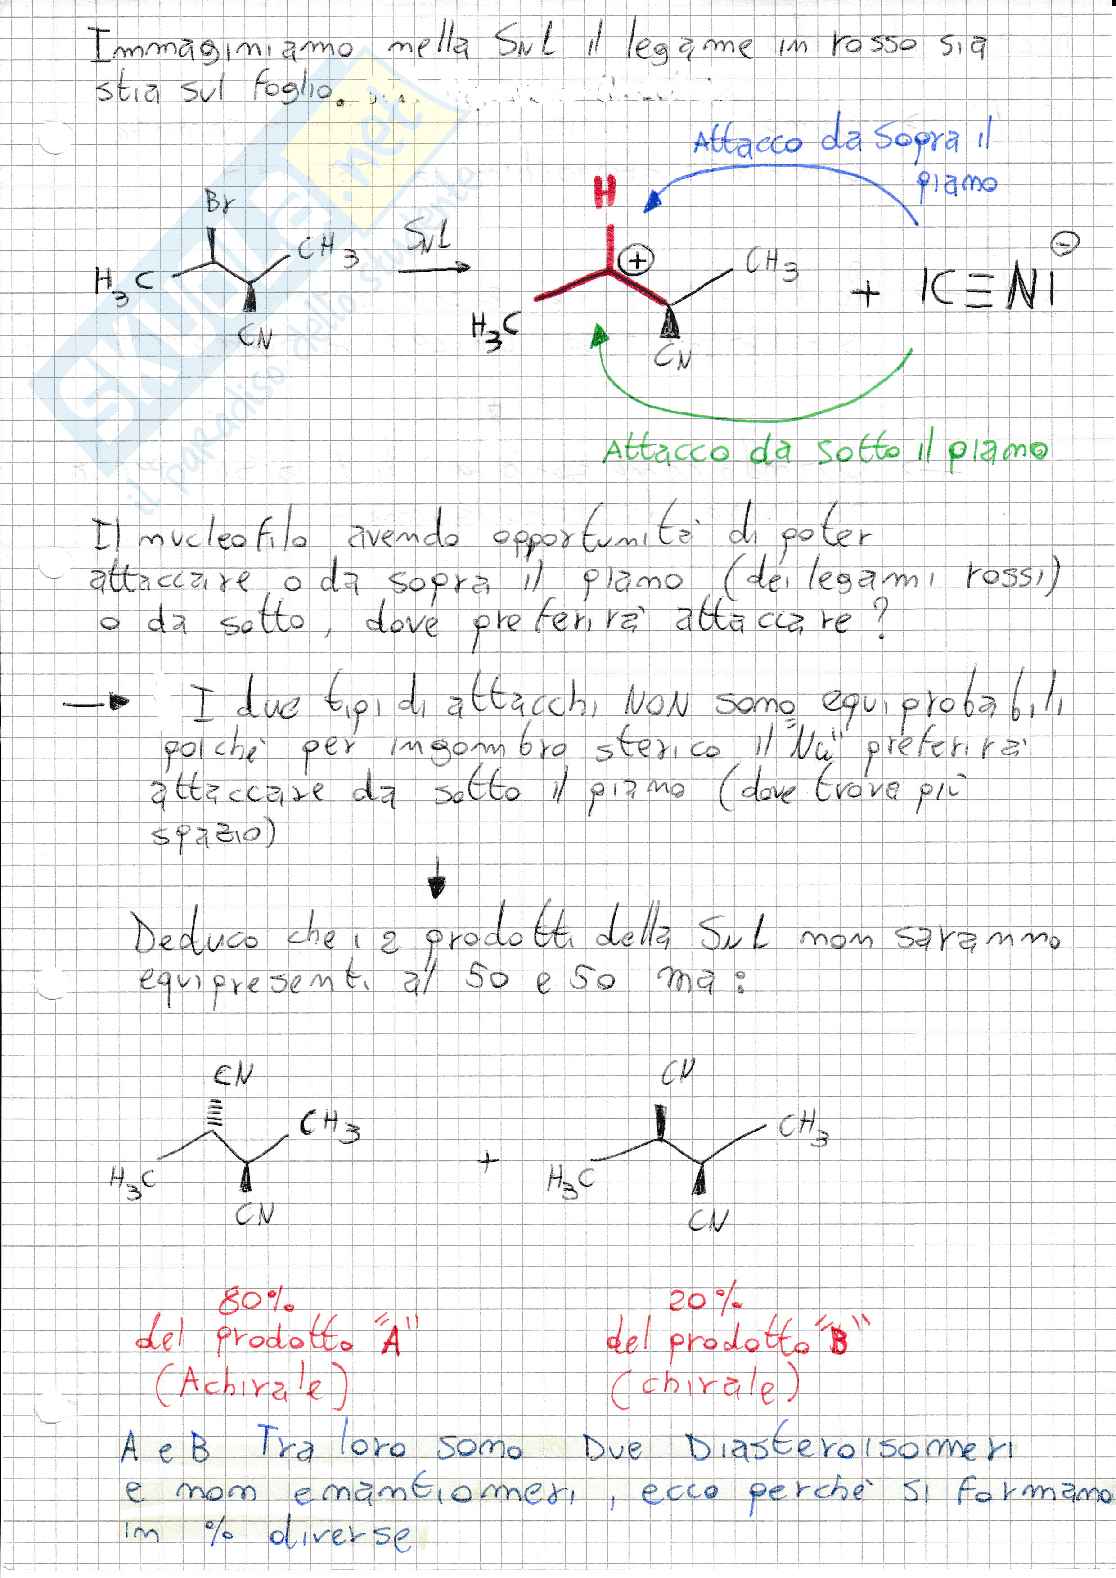 Immaginiamo nella SN1 il legame in rosso sia
stia sul foglio.
Attacco da sopra il
piano
H
Br
CH3
SN1
H3C
CN
H3C
+
CH3
CN
+ |C≡N| -
Attacco da sotto il piano
SKUOLA.net
il paradiso dello studente
Il nucleofilo avendo opportunità di poter
attaccare o da sopra il piano (dei legami rossi)
o da sotto, dove preferirà attaccare?
→ I due tipi di attacchi NON sono equiprobabili
poichè per ingombro sterico il "Nu" preferirà
attaccare da sotto il piano (dove trova più
spazio)
↓
Deduco che i 2 prodotti della SN1 non saranno
equipresenti al 50 e 50 ma:
CN
CH3
H3C
CN
+
CN
CH3
H3C
CN
80%
del prodotto "A"
(Achirale)
20%
del prodotto "B"
(chirale)
A e B Tra loro sono Due Diasteroisomeri
e non enantiomeri, ecco perchè si formano
in % diverse